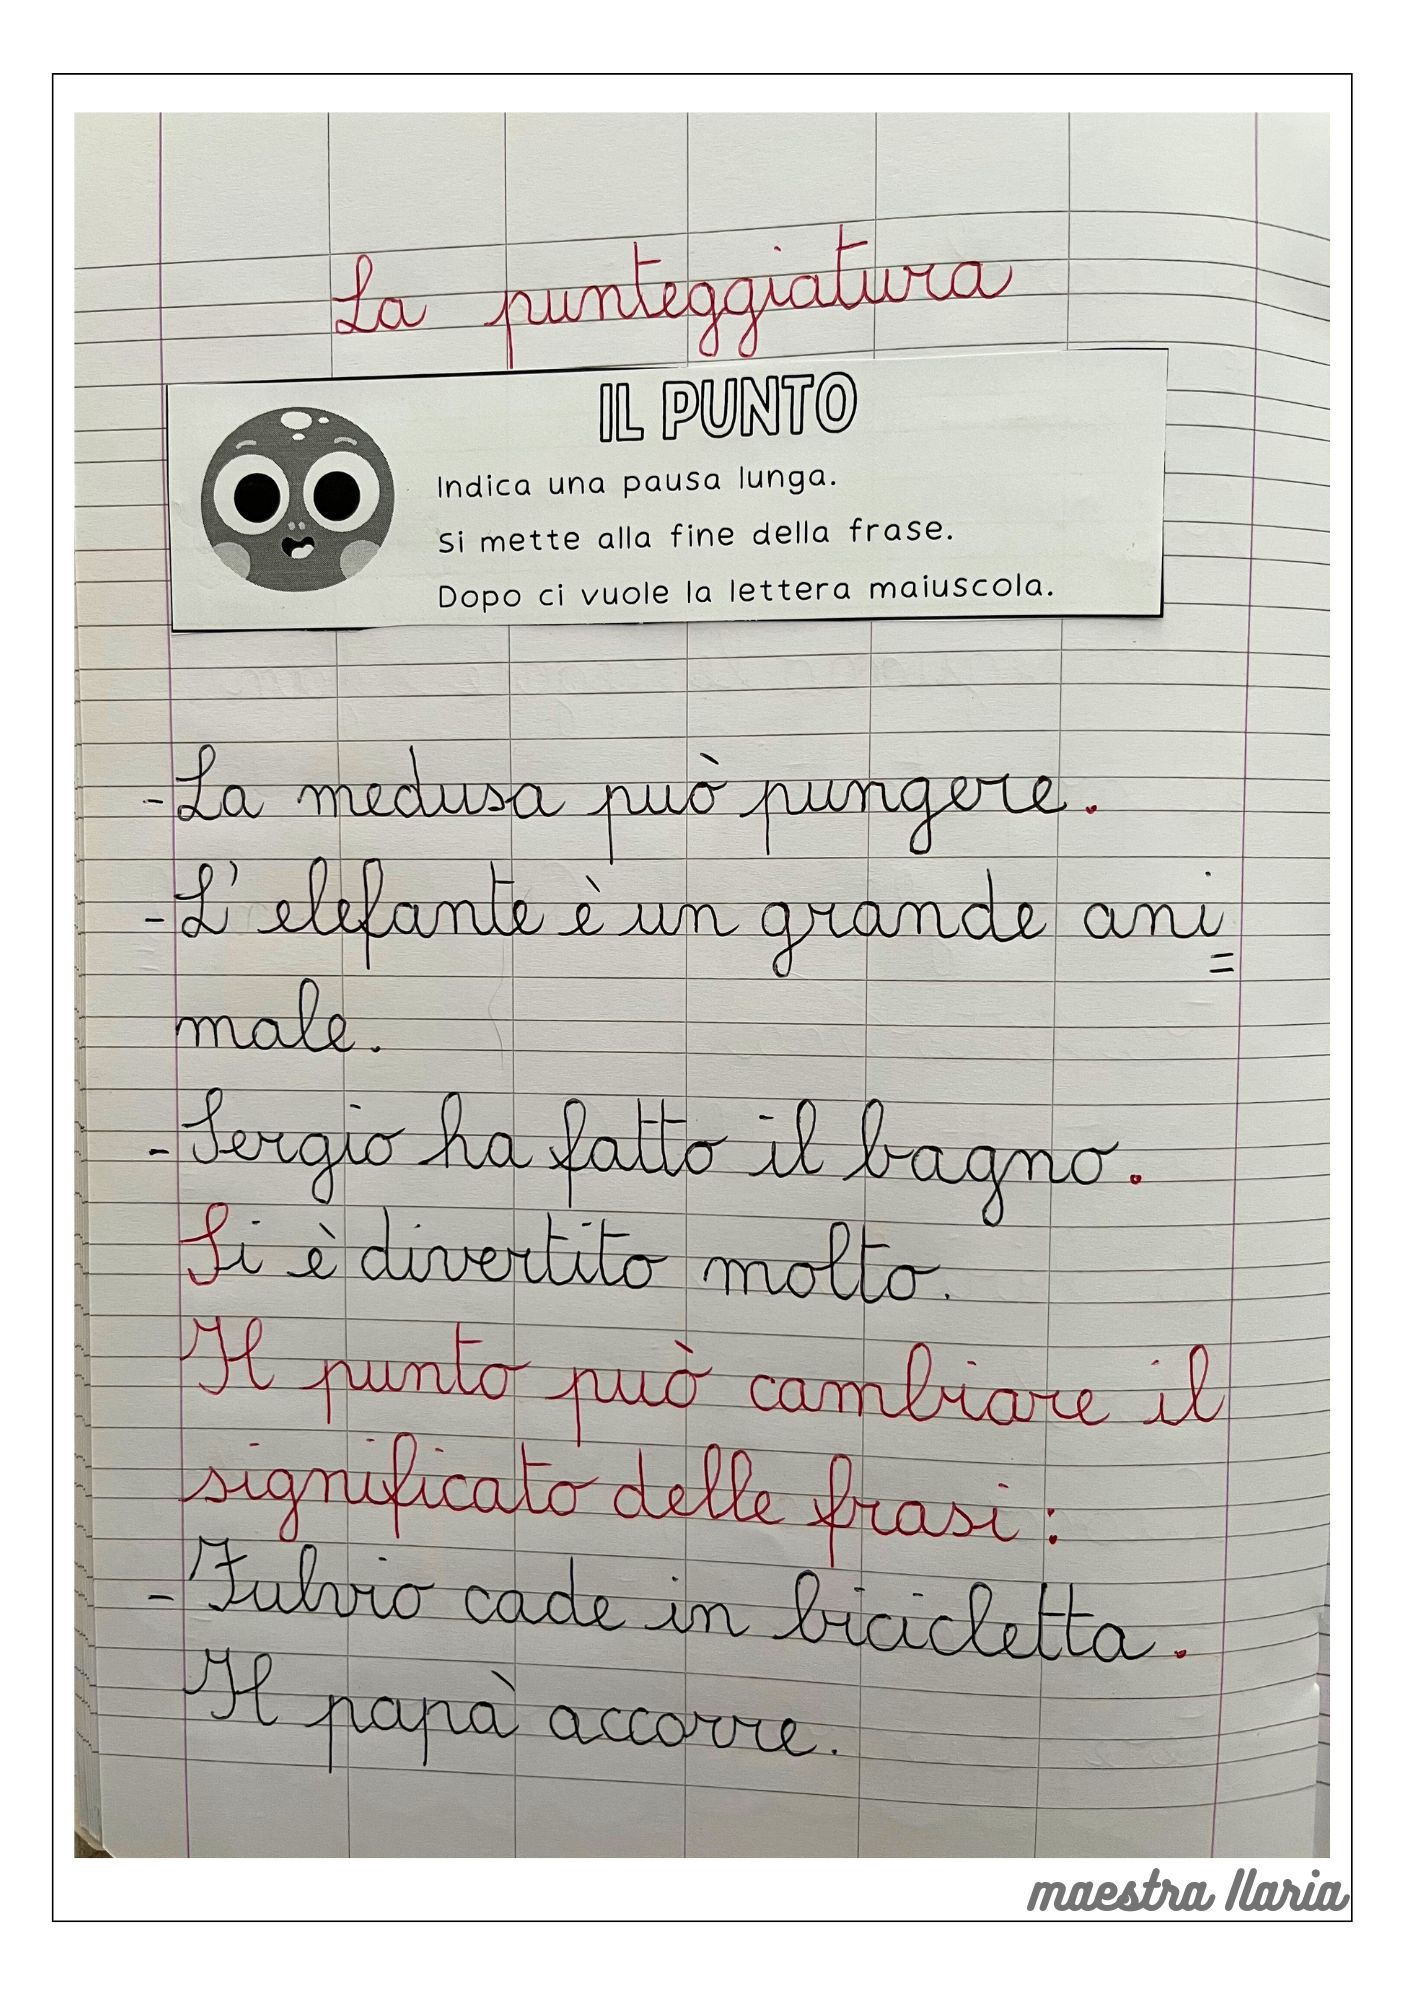 La punteggiatura
IL PUNTO
Indica una pausa lunga.
Si mette alla fine della frase.
Dopo ci vuole la lettera maiuscola.
- La medusa può pungere.
- L' elefante è un grande ani
=
male.
- Sergio ha fatto il bagno.
Si è divertito molto.
Il punto può cambiare il
significato delle frasi:
- Fulvio cade in bicicletta.
Il papà accorre.
maestra Ilaria